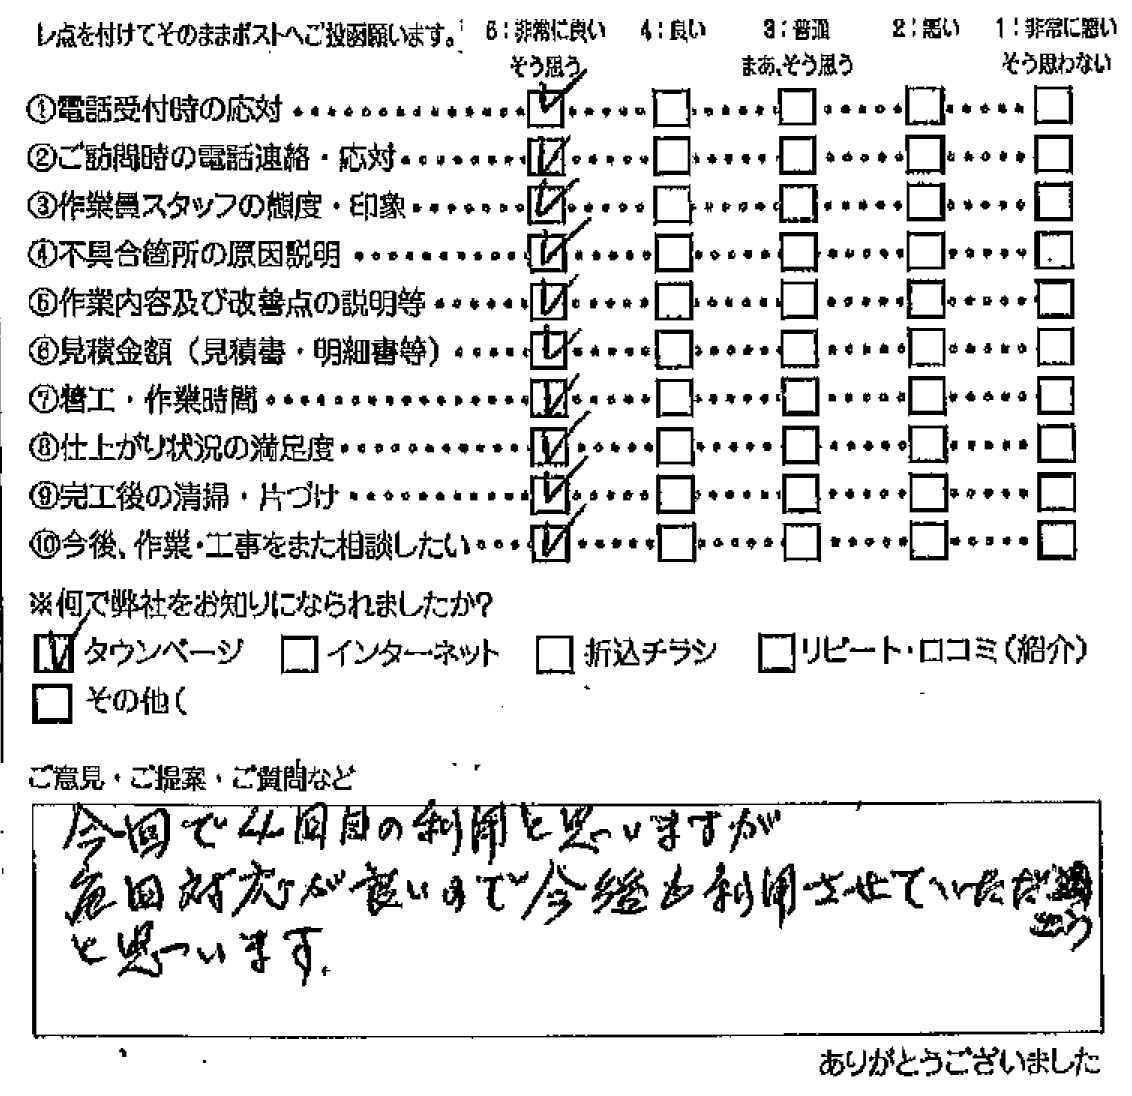 レ点を付けてそのままポストへご投函願います。 5:非常に良い 4:良い 3:普通 2:悪い 1:非常に悪い
そう思う まあ、そう思う そう思わない
①電話受付時の応対
②ご訪問時の電話連絡・応対
③作業員スタッフの態度・印象
④不具合箇所の原因説明
⑤作業内容及び改善点の説明等
⑥見積金額(見積書・明細書等)
⑦着工・作業時間
⑧仕上がり状況の満足度
⑨完工後の清掃・片づけ
⑩今後、作業・工事をまた相談したい
※何で弊社をお知りになられましたか?
タウンページ インターネット 折込チラシ リピート・口コミ(紹介)
その他(
ご意見・ご提案・ご質問など
今回で4回目の利用と思いますが
毎回対応が良いので今後も利用させていただ
と思っています。
ありがとうございました